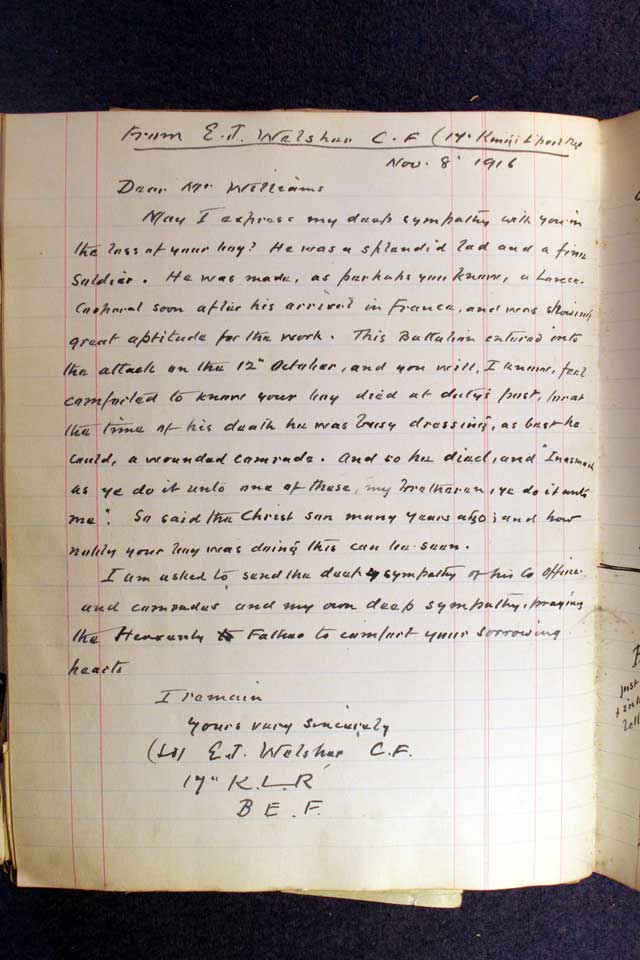 From E.J. Welsher C.F (17th Kings L'pool Reg
Nov. 8' 1916
Dear Mr Williams
May I express my deep sympathy with you in
the loss of your boy? He was a splendid lad and a fine
soldier. He was made, as perhaps you know, a Lance-
Corporal soon after his arrival in France, and was showing
great aptitude for the work. This Battalion entered into
the attack on the 12th October, and you will, I know, feel
comforted to know your boy died at duty's post, for at
the time of his death he was busy dressing, as best he
could, a wounded comrade. And so he died, and "Inasmuch
as ye do it unto one of these, my bretheren, ye do it unto
me". So said the Christ son many years ago; and how
nobly your boy was doing this can be seen.
I am asked to send the deep sympathy of his Co Officer
and comrades and my own deep sympathy, praying
the Heavenly Father to comfort your sorrowing
hearts
I remain
yours very sincerely
E.J. Welsher C.F.
17th K.L.R
B E.F.